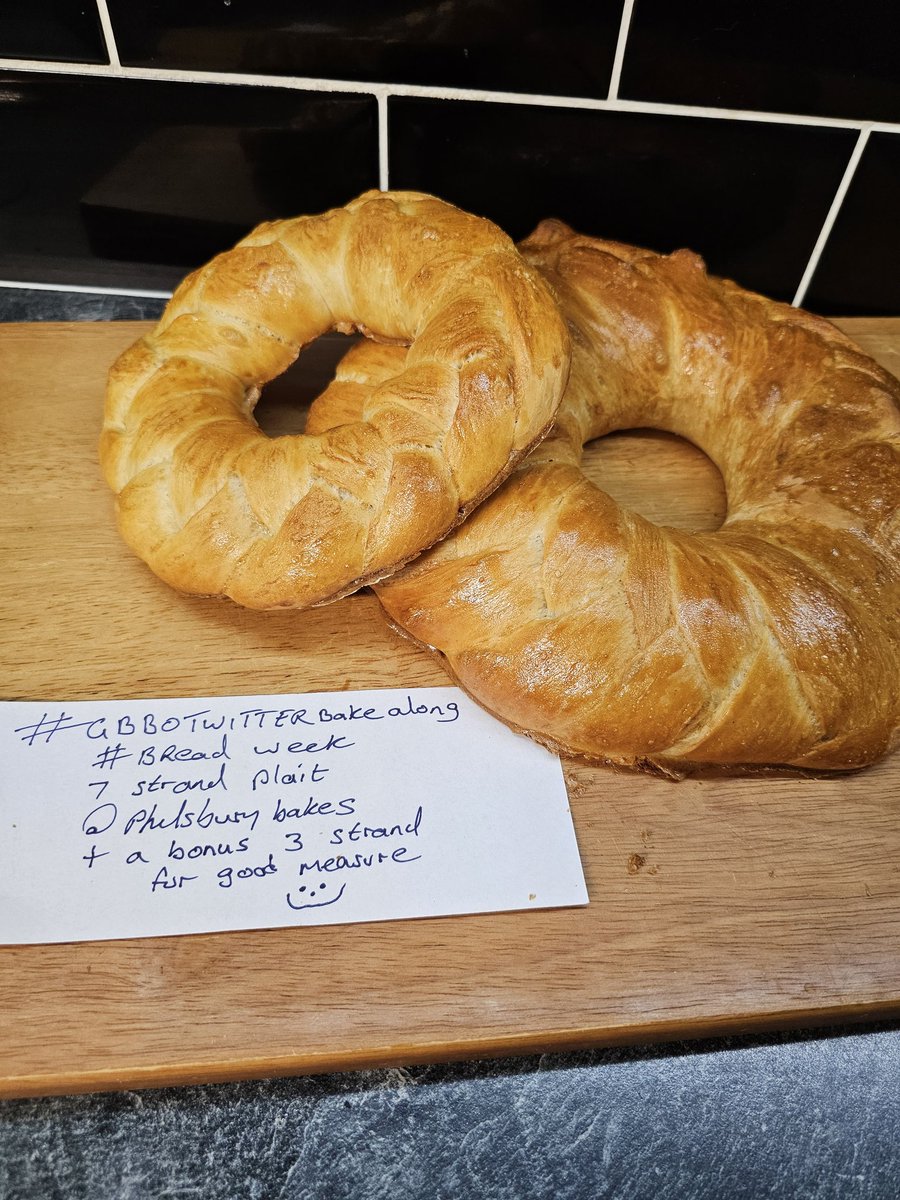 #GBBOTWITTERBakealong
#BRead week
7 strand plait
@Philsbury bakes
+ a bonus 3 strand
for good measure